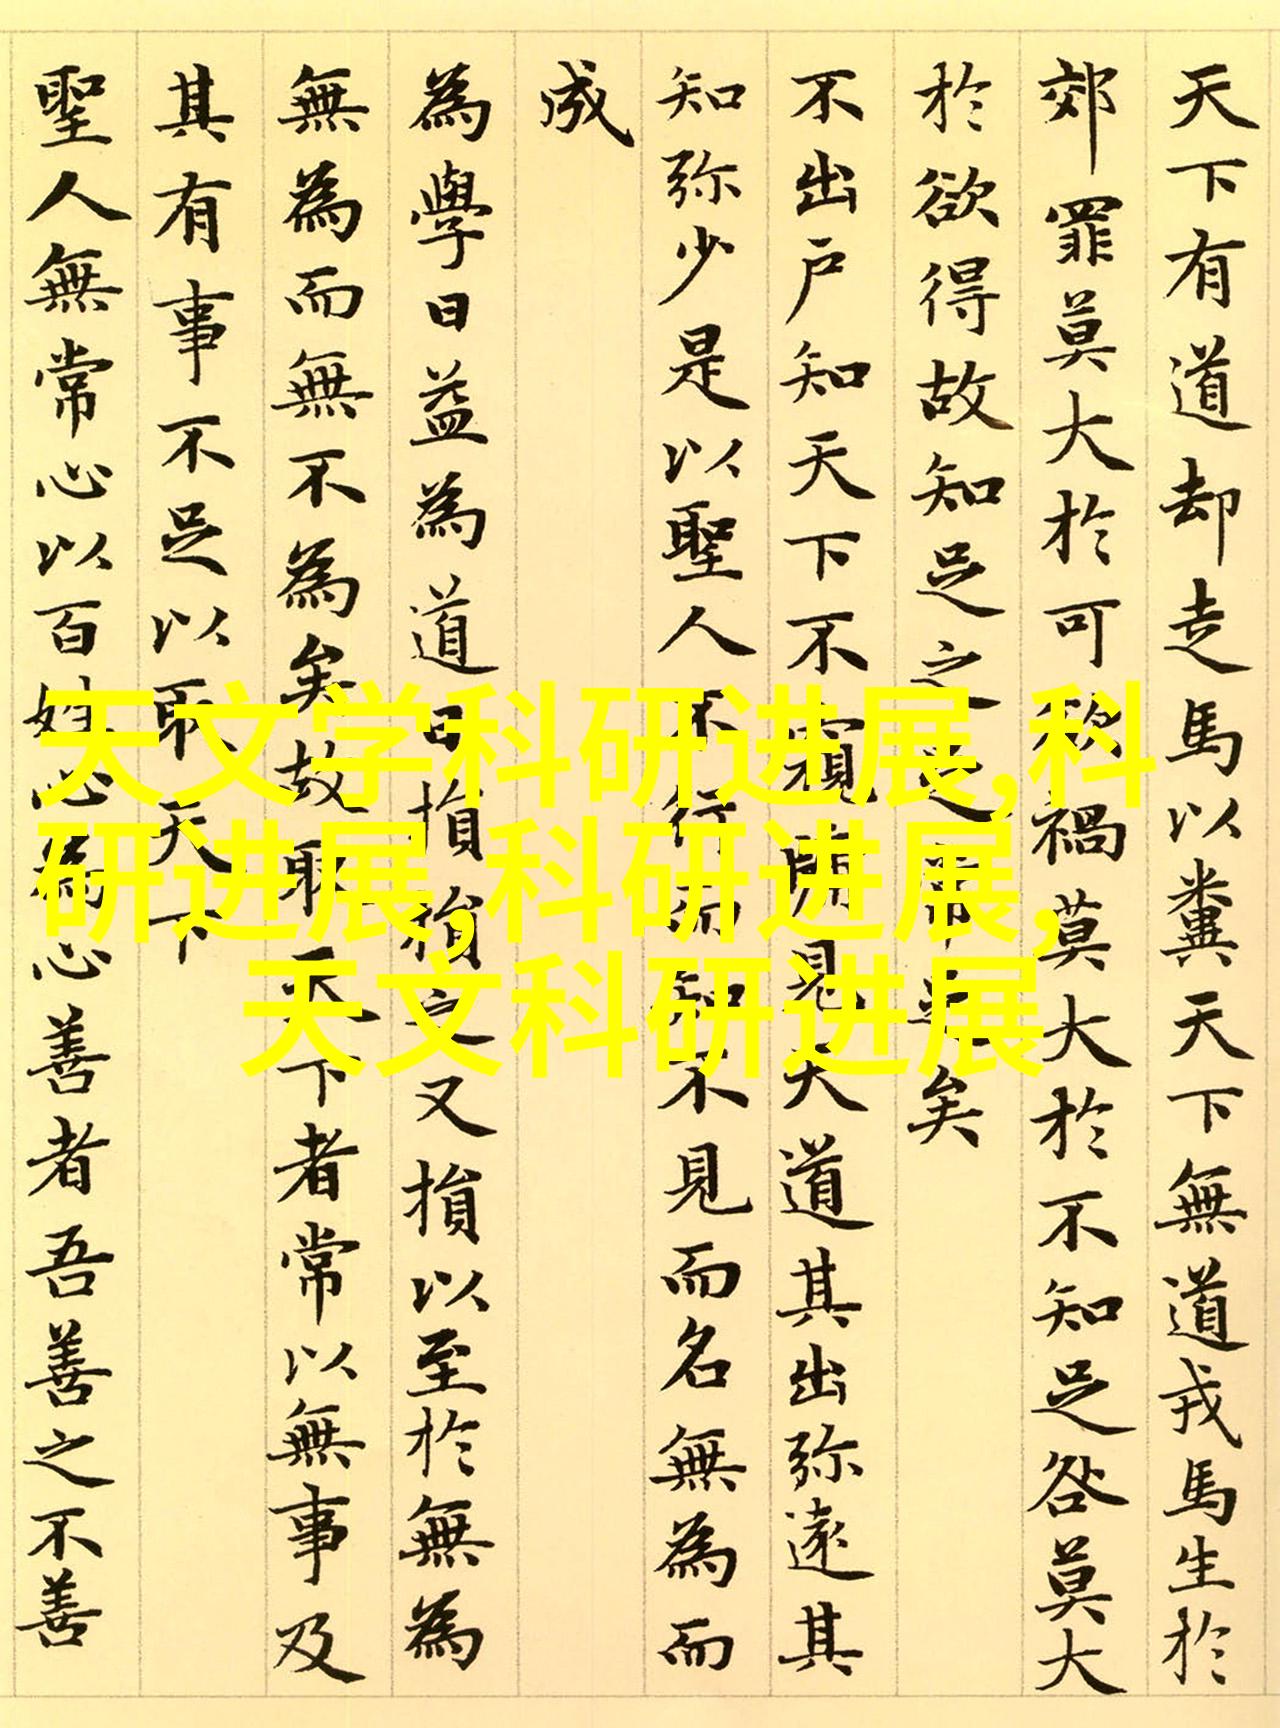 天下有道却走馬以糞天下無道戎馬生於
郊罪莫大於可欲禍莫大於不知足咎莫大
於欲得故知足之足常足矣
不出戶知天下不窺牖見天道其出弥遠其
知弥少是以聖人不行而知不見而名無為而
成
為學日益為道日損損之又損以至於無為
無為而無不為矣故取天下者常以無事及
其有事不足以取天下
聖人無常心以百姓心為心善者吾善之不善
天文学科研进展,科
研进展,科研进展,
天文科研进展